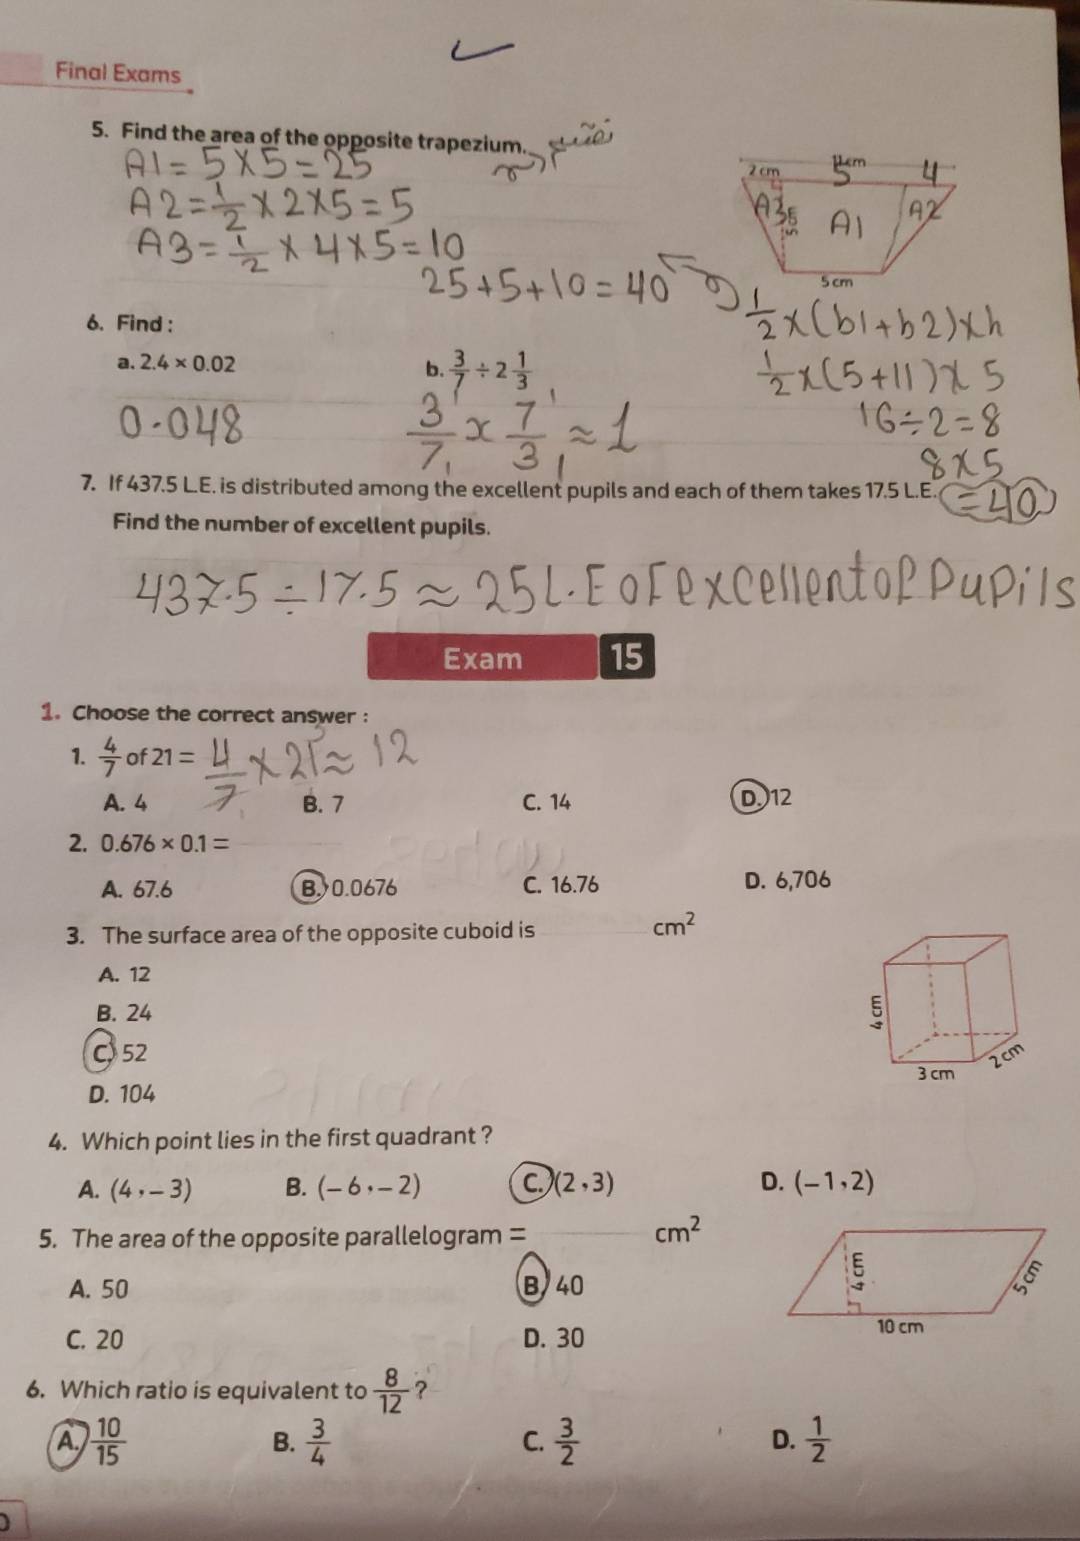 Final Exams
5. Find the area of the opposite trapezium.
A1 = 5 × 5 = 25
A2 = 1/2 × 2 × 5 = 5
A3 = 1/2 × 4 × 5 = 10
25 + 5 + 10 = 40
2 cm
11cm
5
4
A3
5 cm
A1
A2
5 cm
1/2 × (b1 + b2) × h
1/2 × (5 + 11) × 5
16 ÷ 2 = 8
8 × 5
= 40
6. Find :
a. 2.4 × 0.02
b. 3/7 ÷ 2 1/3
0.048
3/7 × 7/3 ≈ 1
7. If 437.5 L.E. is distributed among the excellent pupils and each of them takes 17.5 L.E.
Find the number of excellent pupils.
437.5 ÷ 17.5 ≈ 25 L.E of excellent of Pupils
Exam 15
1. Choose the correct answer :
1. 4/7 of 21 = 4/7 × 21 ≈ 12
A. 4 B. 7 C. 14 D. 12
2. 0.676 × 0.1 =
A. 67.6 B. 0.0676 C. 16.76 D. 6,706
3. The surface area of the opposite cuboid is cm²
A. 12
B. 24
C. 52
D. 104
4 cm
3 cm
2 cm
4. Which point lies in the first quadrant ?
A. (4 , – 3) B. (– 6 , – 2) C. (2 , 3) D. (– 1 , 2)
5. The area of the opposite parallelogram = cm²
A. 50 B. 40
C. 20 D. 30
4 cm
5 cm
10 cm
6. Which ratio is equivalent to 8/12 ?
A. 10/15 B. 3/4 C. 3/2 D. 1/2